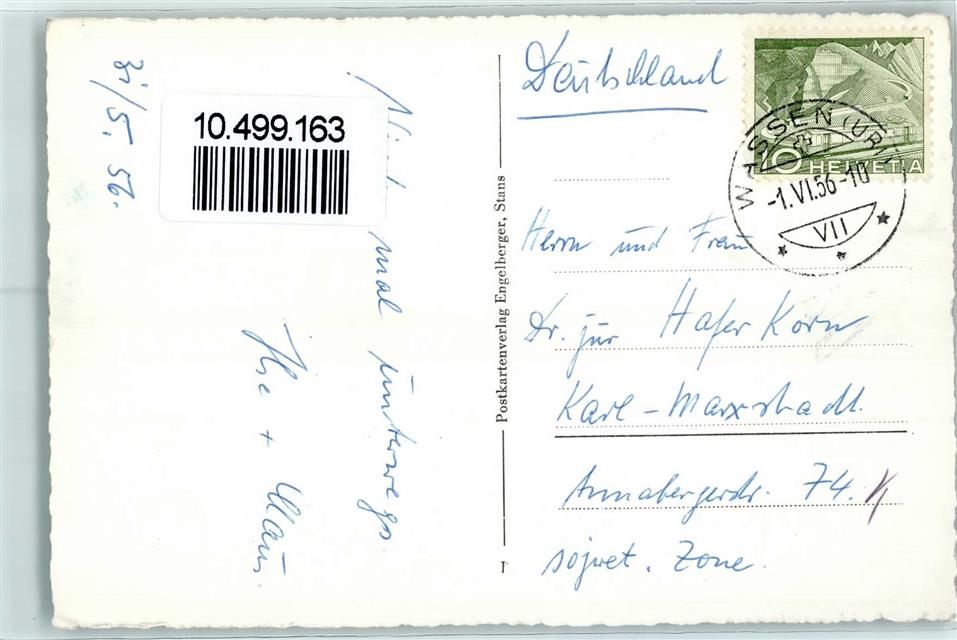 31/5. 56.
10.499.163
mal unterwegs.
Ilse + Klaus.
Postkartenverlag Engelberger, Stans
Deutschland
10 HELVETIA
WASSEN (URI)
-1.VI.56-10
VII
Herrn und Frau
Dr. jur Hafer Korn
Karl-Marxstadt.
Annabergerstr. 74.
sowjet. Zone.